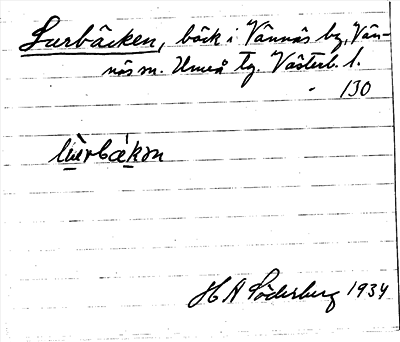 Lurbäcken, bäck i Vännäs by, Vän-
näs sn. Umeå tg. Västerb. l.
130
H A Söderberg 1934